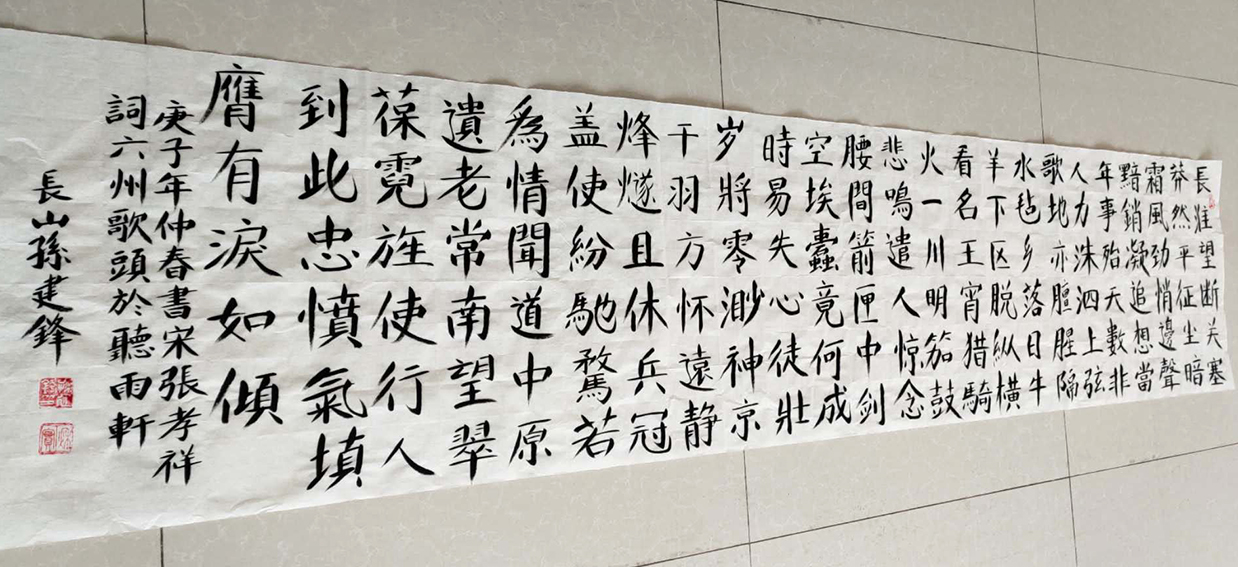 長淮望断关塞
莽然平征尘暗
霜風勁悄邊聲
黯銷凝追想當
年事殆天數非
人力洙泗上弦
歌地亦膻腥隔
水毡乡落日牛
羊下区脱縱横
看名王宵猎騎
火一川明笳鼓
悲鳴遣人惊念
腰間箭匣中剑
空埃蠹竟何成
時易失心徒壯
岁將零渺神京
干羽方怀遠静
烽燧且休兵冠
盖使紛馳騖若
為情聞道中原
遺老常南望翠
葆霓旌使行人
到此忠憤氣填
膺有淚如傾
庚子年仲春書宋張孝祥
詞六州歌頭於聽雨軒
長山孫建鋒